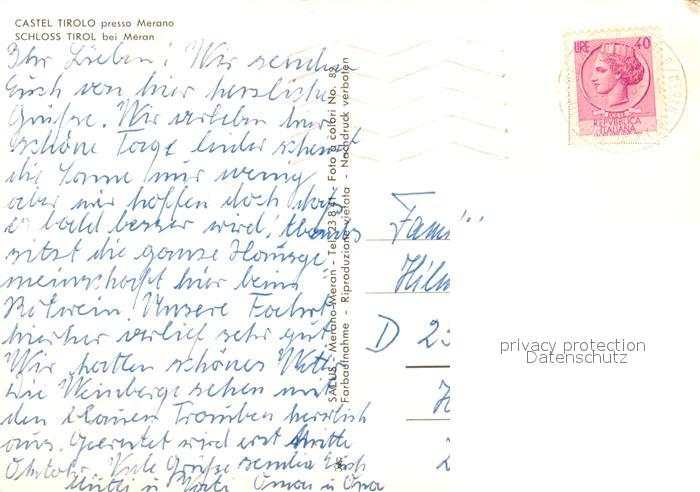 CASTEL TIROLO presso Merano
SCHLOSS TIROL bei Meran
Ihr Lieben! Wir senden
Euch von hier herzliche
Grüße. Wir verleben hier
schöne Tage leider scheint
die Sonne nur wenig
aber wir hoffen doch daß
es bald besser wird! Abends
sitzt die ganze Hausge-
meinschaft hier beim
Rotwein. Unsere Fahrt
hierher verlief sehr gut
Wir hatten schönes
Die Weinberge sehen mit
den blauen Trauben herrlich
aus. Geerntet wird erst Mitte
Oktober. Viele Grüße senden Euch
Mutti u Vati Oma u Opa
SALUS - Merano-Meran - Tel. 23 8 71 - Foto a colori No. 89
Farbaufnahme - Riproduzione vietata - Nachdruck verboten
LIRE 40
POSTE
REPVBBLICA
ITALIANA
Fami
D 2
privacy protection
Datenschutz